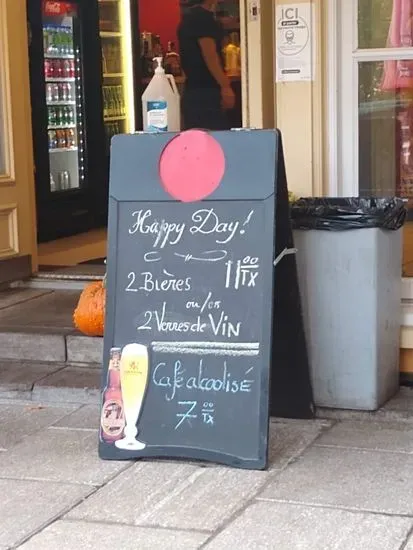 ICI
Happy Day!
2 Bières 11 00 TX
ou/or
2 Verres de VIN
Café alcoolisé
7 00 TX